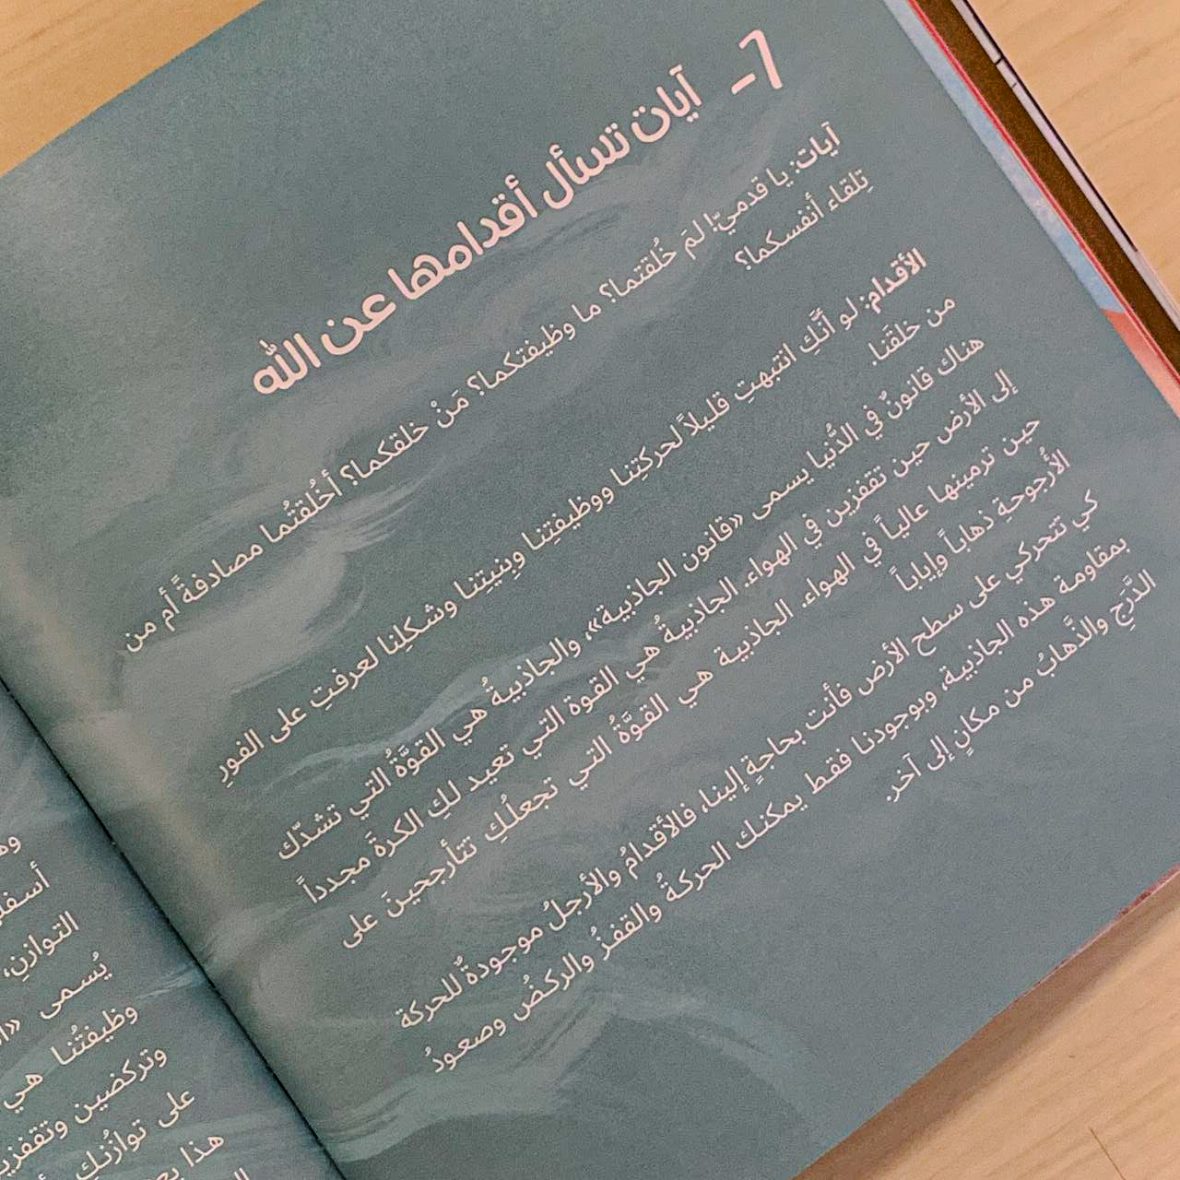 1- آيات تسأل أقدامها عن الله
آيات: يا قدميّ! لمَ خُلقتما؟ ما وظيفتكما؟ مَنْ خلقكما؟ أخُلقتُما مصادفةً أم من
تِلقاء أنفسكما؟
الأقدام: لو أنَّكِ انتبهتِ قليلاً لحركتِنا ووظيفتِنا وبِنيتِنا وشكلِنا لعرفتِ على الفورِ
من خلقَنا.
هناك قانونٌ في الدُّنيا يسمى «قانون الجاذبية»، والجاذبيةُ هي القوَّةُ التي تشدّك
إلى الأرض حين تقفزين في الهواء. الجاذبيةُ هي القوة التي تعيد لكِ الكرةَ مجدداً
حين ترمينها عالياً في الهواء. الجاذبية هي القوَّةُ التي تجعلُكِ تتأرجحينَ على
الأُرجوحةِ ذهاباً وإياباً
كي تتحركي على سطح الأرض فأنت بحاجةٍ إلينا، فالأقدامُ والأرجلُ موجودةٌ للحركة
بمقاومة هذه الجاذبية، وبوجودنا فقط يمكنك الحركةُ والقفزُ والركضُ وصعودُ
الدَّرَجِ والذَّهابُ من مكانٍ إلى آخر.
التوازنِ،
يُسمى
وظيفتُنا هي
وتركضين وتقفزين
على توازُنكِ
هذا